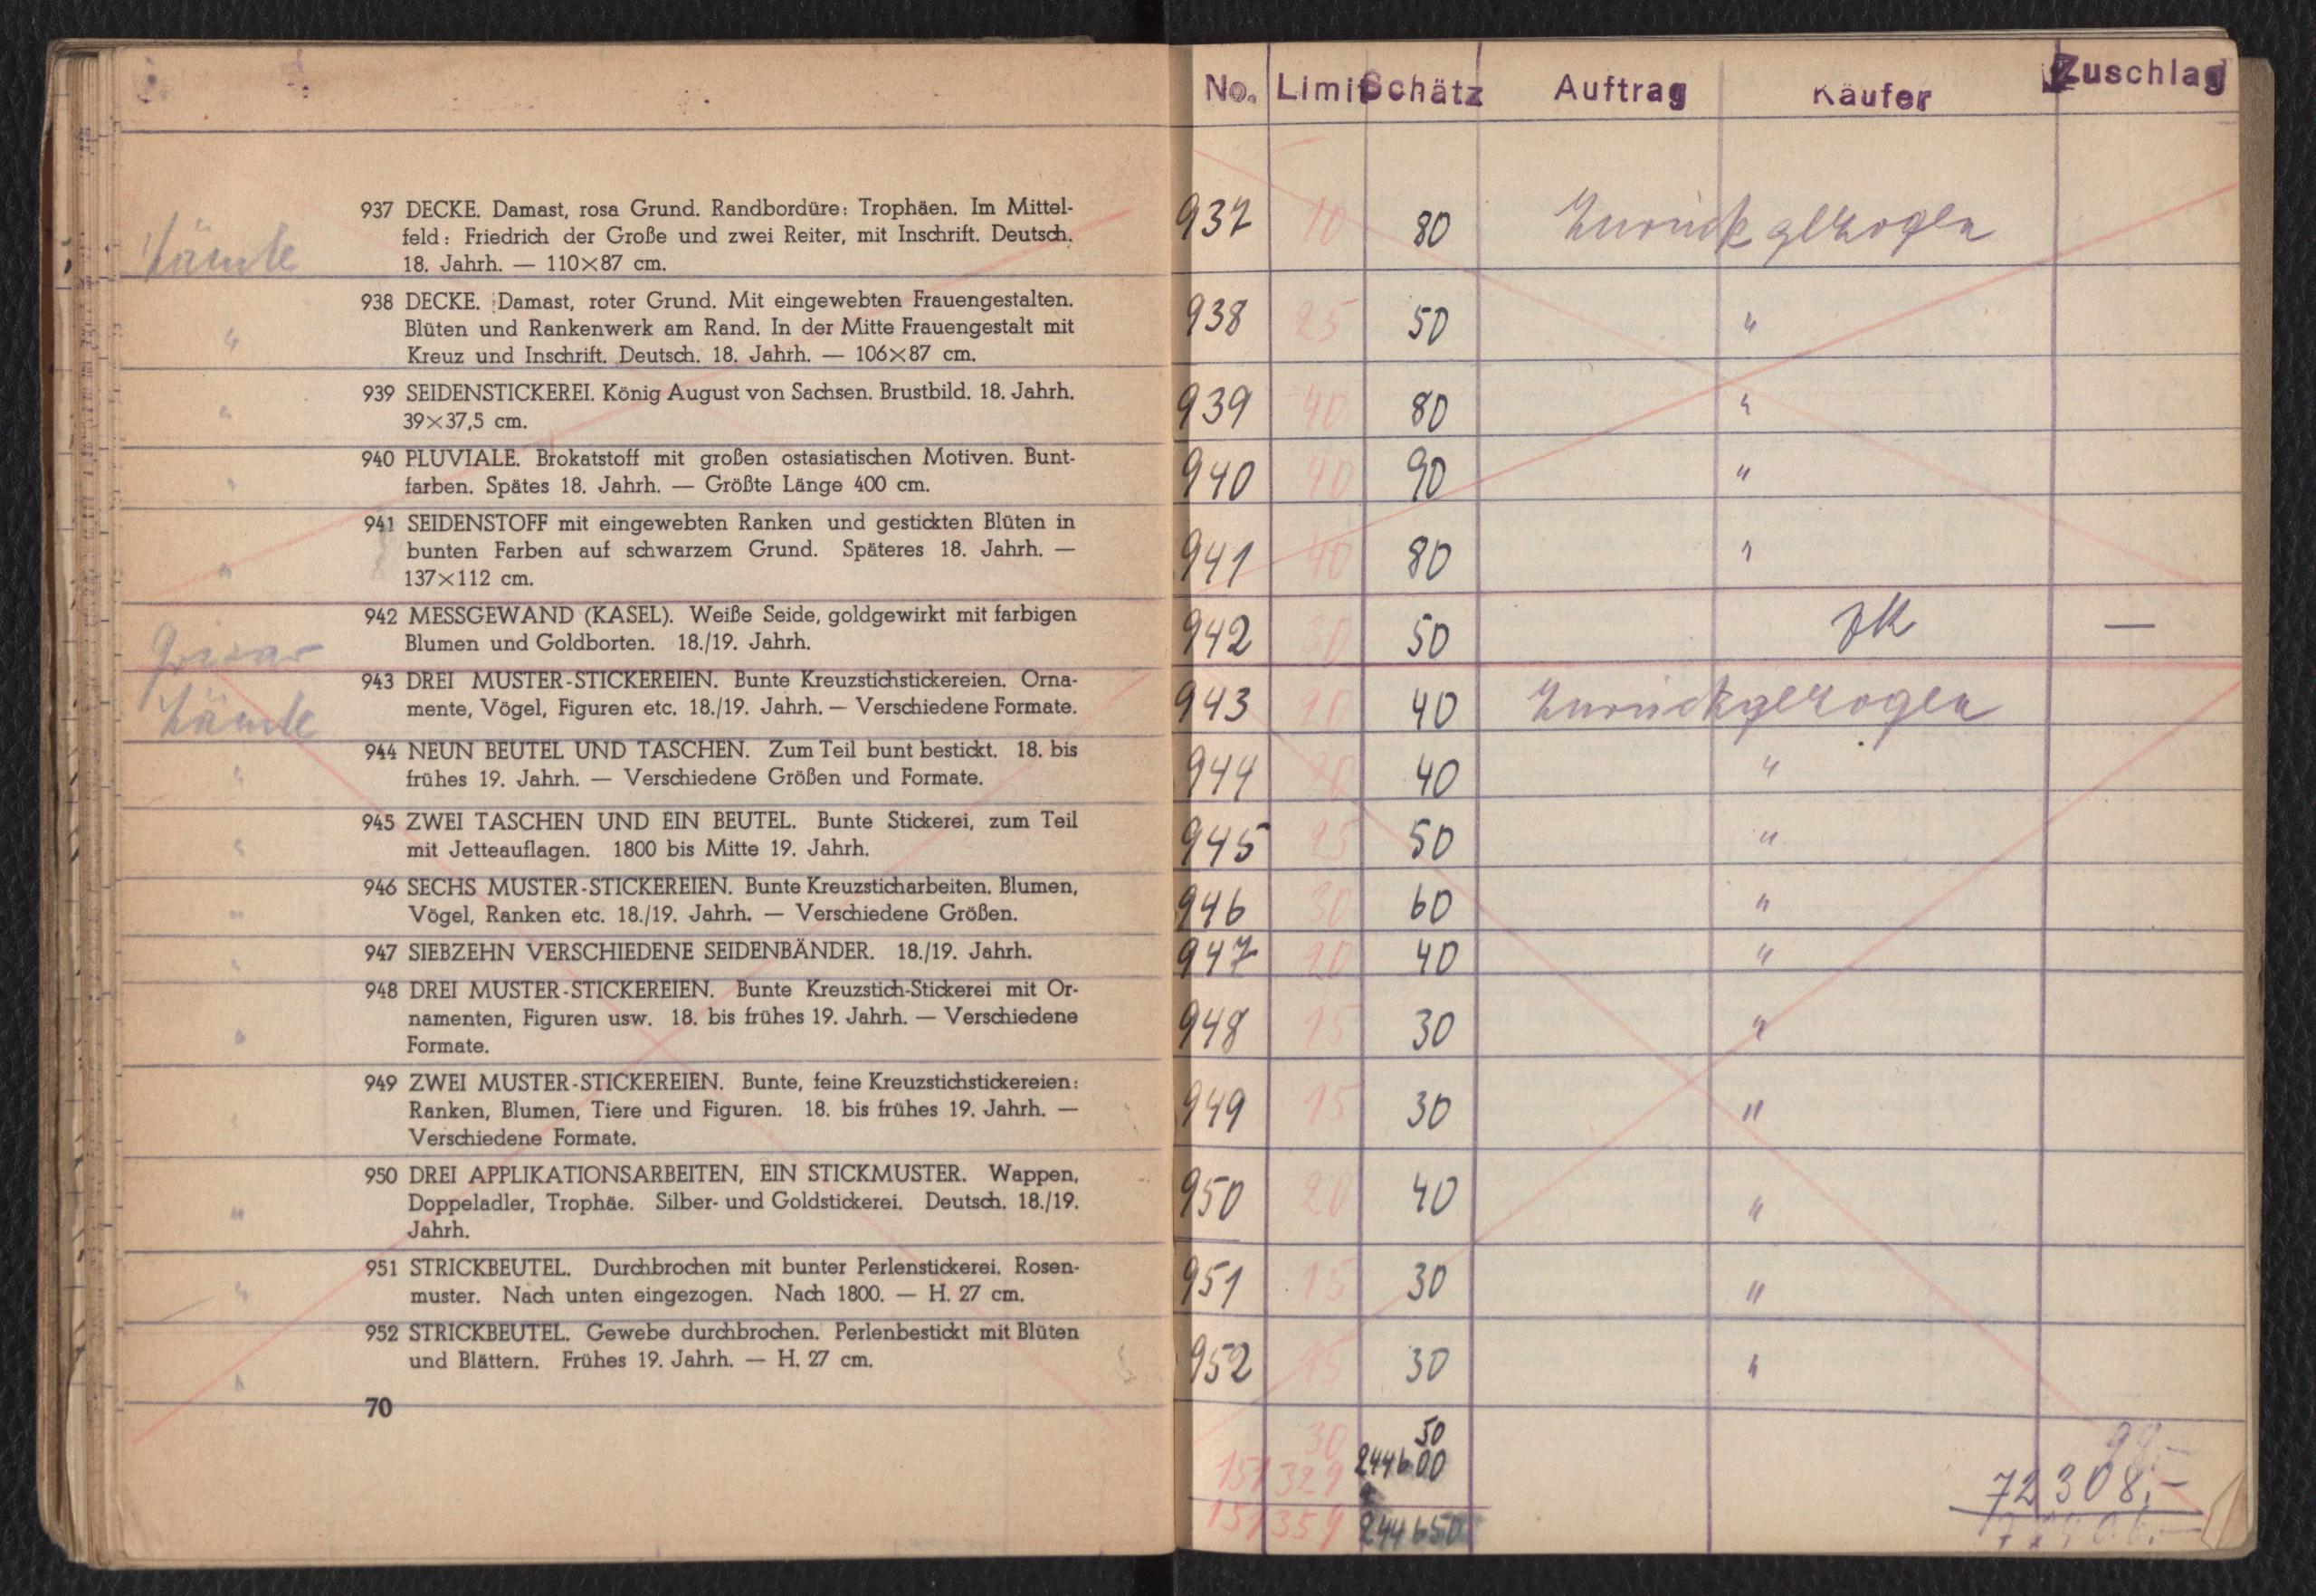 937 DECKE. Damast, rosa Grund. Randbordüre: Trophäen. Im Mittel-
feld: Friedrich der Große und zwei Reiter, mit Inschrift. Deutsch.
18. Jahrh. — 110×87 cm.
938 DECKE. Damast, roter Grund. Mit eingewebten Frauengestalten.
" Blüten und Rankenwerk am Rand. In der Mitte Frauengestalt mit
Kreuz und Inschrift. Deutsch. 18. Jahrh. — 106×87 cm.
939 SEIDENSTICKEREI. König August von Sachsen. Brustbild. 18. Jahrh.
" 39×37,5 cm.
940 PLUVIALE. Brokatstoff mit großen ostasiatischen Motiven. Bunt-
" farben. Spätes 18. Jahrh. — Größte Länge 400 cm.
941 SEIDENSTOFF mit eingewebten Ranken und gestickten Blüten in
bunten Farben auf schwarzem Grund. Späteres 18. Jahrh. —
" 137×112 cm.
942 MESSGEWAND (KASEL). Weiße Seide, goldgewirkt mit farbigen
Blumen und Goldborten. 18./19. Jahrh.
943 DREI MUSTER-STICKEREIEN. Bunte Kreuzstichstickereien. Orna-
mente, Vögel, Figuren etc. 18./19. Jahrh. — Verschiedene Formate.
944 NEUN BEUTEL UND TASCHEN. Zum Teil bunt bestickt. 18. bis
" frühes 19. Jahrh. — Verschiedene Größen und Formate.
945 ZWEI TASCHEN UND EIN BEUTEL. Bunte Stickerei, zum Teil
" mit Jetteauflagen. 1800 bis Mitte 19. Jahrh.
946 SECHS MUSTER-STICKEREIEN. Bunte Kreuzsticharbeiten. Blumen,
" Vögel, Ranken etc. 18./19. Jahrh. — Verschiedene Größen.
" 947 SIEBZEHN VERSCHIEDENE SEIDENBÄNDER. 18./19. Jahrh.
948 DREI MUSTER-STICKEREIEN. Bunte Kreuzstich-Stickerei mit Or-
namenten, Figuren usw. 18. bis frühes 19. Jahrh. — Verschiedene
" Formate.
949 ZWEI MUSTER-STICKEREIEN. Bunte, feine Kreuzstichstickereien:
Ranken, Blumen, Tiere und Figuren. 18. bis frühes 19. Jahrh. —
Verschiedene Formate.
950 DREI APPLIKATIONSARBEITEN, EIN STICKMUSTER. Wappen,
" Doppeladler, Trophäe. Silber- und Goldstickerei. Deutsch. 18./19.
Jahrh.
951 STRICKBEUTEL. Durchbrochen mit bunter Perlenstickerei. Rosen-
" muster. Nach unten eingezogen. Nach 1800. — H. 27 cm.
952 STRICKBEUTEL. Gewebe durchbrochen. Perlenbestickt mit Blüten
" und Blättern. Frühes 19. Jahrh. — H. 27 cm.
70
No. Limit Schätz Auftrag Käufer Zuschlag
937 10 80 Zurückgezogen
938 25 50 "
939 40 80 "
940 40 90 "
941 40 80 "
942 30 50 —
943 20 40 Zurückgezogen
944 20 40 "
945 25 50 "
946 30 60 "
947 20 40 "
948 15 30 "
949 15 30 "
950 20 40 "
951 15 30 "
952 15 30 "
30 50
151329 244600 72308,–
151359 244650